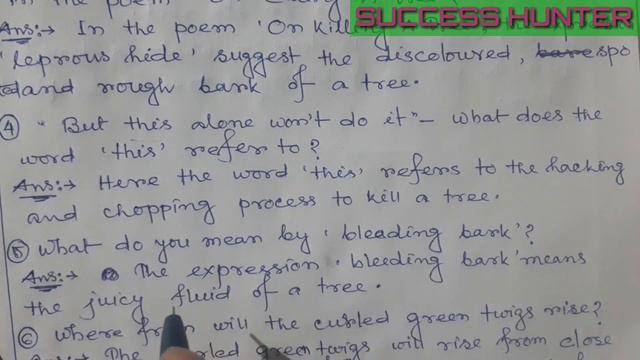 SUCCESS HUNTER
in the poem
Ans:→ In the poem 'On Killing
'leprous hide' suggest the discoloured, bare spo
ed and rough bark of a tree.
④ "But this alone won't do it" – what does the
word 'this' refer to?
Ans:→ Here the word 'this' refers to the hacking
and chopping process to kill a tree.
⑤ What do you mean by 'bleading bark'?
Ans:→ The expression 'bleeding bark' means
the juicy fluid of a tree.
⑥ Where from will the curled green twigs rise?
The curled green twigs will rise from close